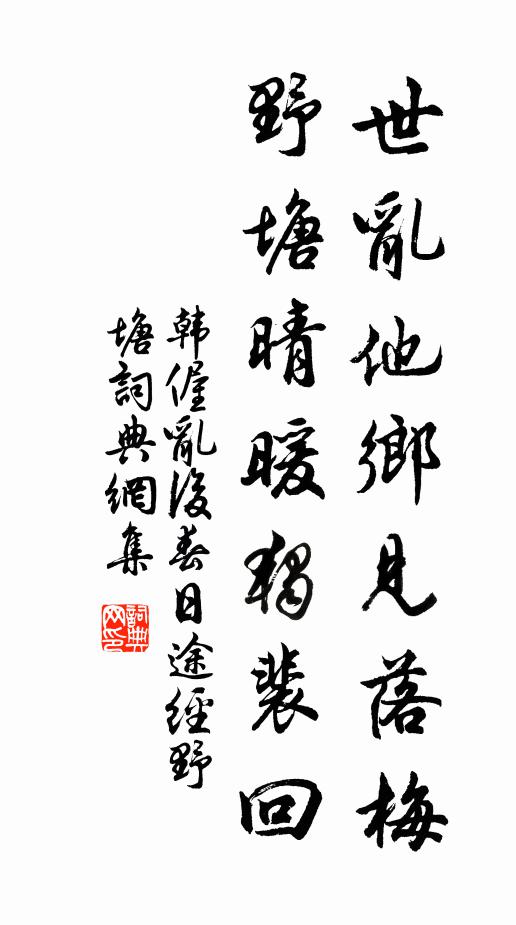 世亂他鄉見落梅
野塘晴暖獨裴回
韩偓亂後春日途經野
塘詞典網集
詞典网印